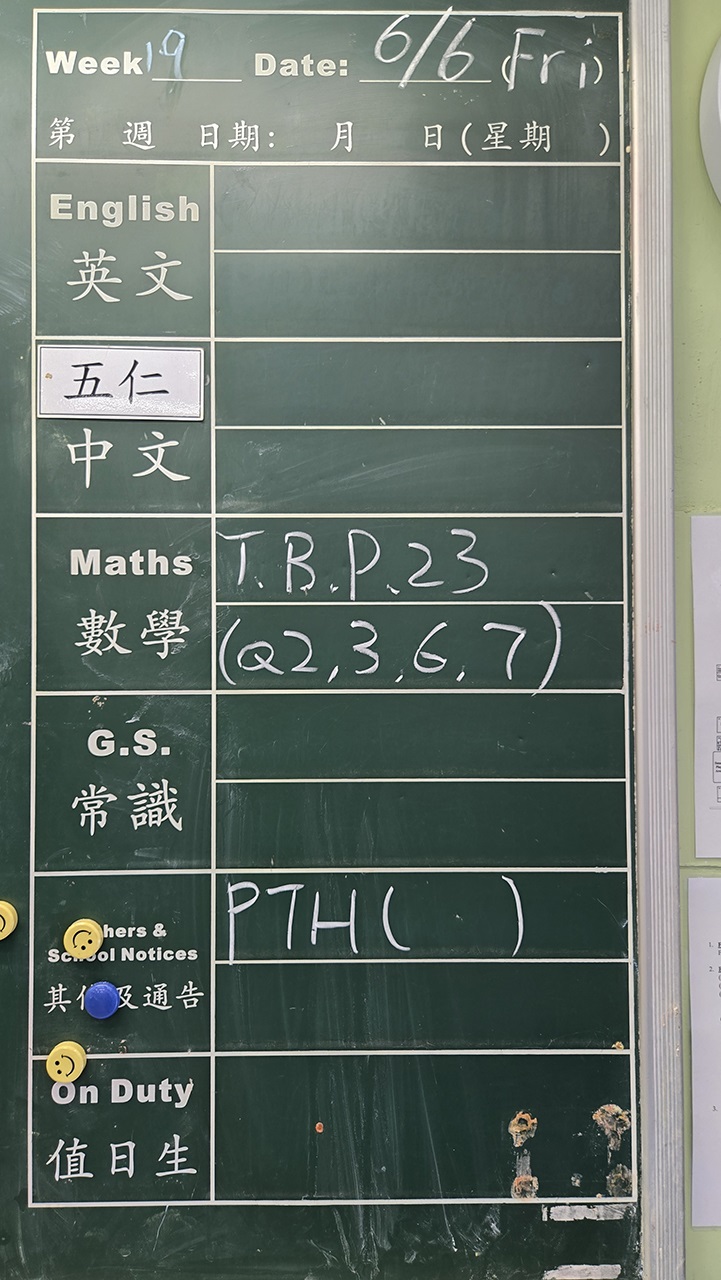 Week 19 Date: 6/6 (Fri)
第 週 日期: 月 日(星期 )
English
英文
五仁
中文
Maths T.B.P.23
數學 (Q2,3,6,7)
G.S.
常識
PTH( )
hers &
School Notices
其他及通告
On Duty
值日生